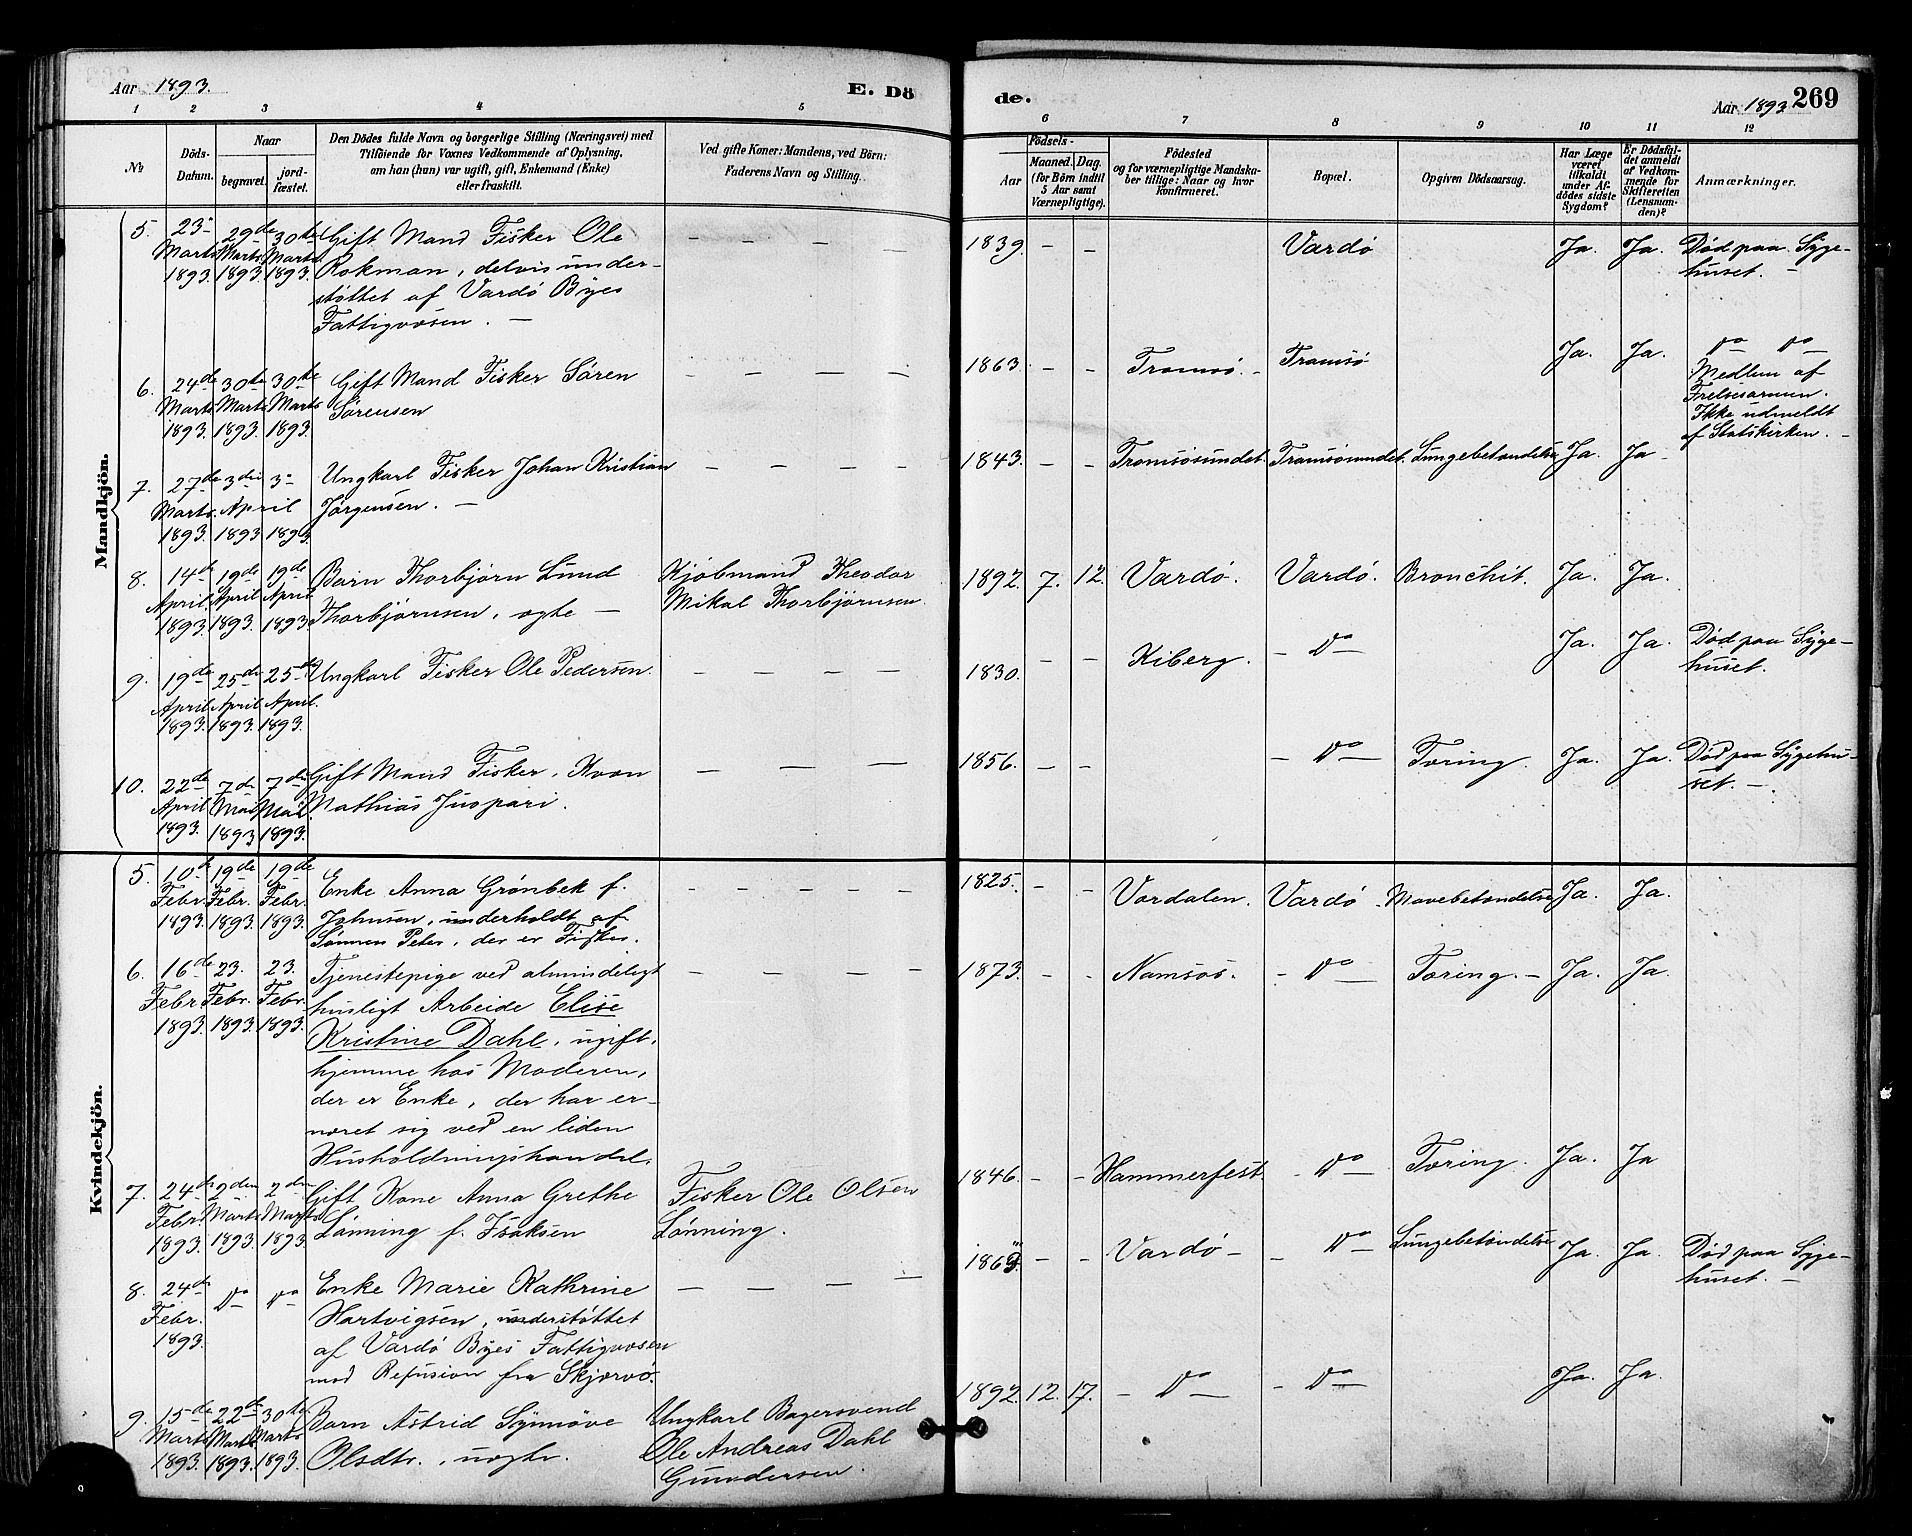 Aar 1893.
E. Dö
de.
Aar 1893 269
1 2 3 4 5 6 7 8 9 10 11 12
No
Döds-
Datum.
Naar
begravet.
jord-
fæstet.
Den Dödes fulde Navn og borgerlige Stilling (Næringsvei) med
Tilföiende for Voxnes Vedkommende af Oplysning,
om han (hun) var ugift, gift, Enkemand (Enke)
eller fraskilt.
Ved gifte Koner: Mandens, ved Börn:
Faderens Navn og Stilling.
Födsels-
Aar
Maaned. Dag.
(for Börn indtil
5 Aar samt
Værnepligtige).
Födested
og for værnepligtige Mandska-
ber tillige: Naar og hvor
Konfirmeret.
Bopæl.
Opgiven Dödsaarsag.
Har Læge
været
tilkaldt
under Af-
dödes sidste
Sygdom?
Er Dödsfal-
det anmeldt
af Vedkom-
mende for
Skifteretten
(Lensman-
den)?
Anmærkninger.
Mandkjön.
5. 23 Marts 1893 29de Marts 1893 30te Marts 1893. Gift Mand Fisker Ole
Rokman, delvis under-
støttet af Vardø Byes
Fattigvæsen. —
— — — —
1839 — — Vardø Ja. Ja. Død paa Syge-
huset. —
6. 24de Marts 1893. 30te Marts 1893. 30te Marts 1893. Gift Mand Fisker Søren
Sørensen
— — — —
1863. — — Tromsø. — Tromsø Ja. Ja. Do Do
Medlem af
Frelsesarmeen.
Ikke udmeldt
af Statskirken. —
7. 27de Marts 1893. 3die April 1893 3 April 1893 Ungkarl Fisker Johan Kristian
Jørgensen. —
— — — —
1843. — — Tromsøsundet. Tromsøsundet. Lungebetændelse Ja. Ja —
8. 14de April 1893. 19de April 1893. 19de April 1893 Barn Thorbjørn Lund
Thorbjørnsen, ægte —
Kjøbmand Theodor
Mikal Thorbjørnsen.
1892. 7. 12. Vardø. Vardø. Bronchit. Ja. Ja.
9. 19de April 1893. 25de April 1893. 25de April. 1893. Ungkarl Fisker Ole Pedersen.
— — — —
1830. — — Kiberg. — Do — Ja. Ja. Død paa Syge-
huset.
10. 22de April 1893. 7de Mai 1893 7de Mai 1893. Gift Mand Fisker, Kvæn
Mathias Juopari.
— — —
1856. — — — Do — Tæring. Ja. Ja. Død paa Sygehu-
set. —.
Kvindekjön.
5. 10de Febr. 1893 19de Febr. 1893 19de Febr. 1893 Enke Anna Grønbek f.
Johnsen, underholdt af
Sønnen Peter, der er Fisker.
— — — — —
1825. — — Værdalen. Vardø. Mavebetændelse Ja. Ja.
6. 16de Febr 1893. 23. Febr. 1893. 23. Febr. 1893. Tjenestepige ved almindeligt
husligt Arbeide Elise
Kristine Dahl, ugift,
hjemme hos Moderen,
der er Enke, der har er-
næret sig ved en liden
Husholdningshandel.
— — — —
1873. — — Namsos. — Do — Tæring. — Ja. Ja.
7. 24de Febr. 1893. 2den Marts 1893. 2den Marts 1893. Gift Kone Anna Grethe
Lønning f. Isaksen
Fisker Ole Olsen
Lønning.
1846. — — Hammerfest. — Do — Tæring. Ja. Ja
8. 24de Febr. 1893. Do Do Enke Marie Kathrine
Hartvigsen, understøttet
af Vardø Byes Fattigvæsen
mod Refusion fra Skjærvø.
— — — —
— — Vardø — — Do — Lungebetændelse Ja. Ja. Død paa Syge-
huset. —
9. 15de Marts 1893. 22de Marts 1893. 30te Marts 1893. Barn Astrid Synnøve
Olsdtr., uægte.
Ungkarl Bagersvend
Ole Andreas Dahl
Gundersen.
1892. 12. 17. — Do — — Do — Ja. Ja.